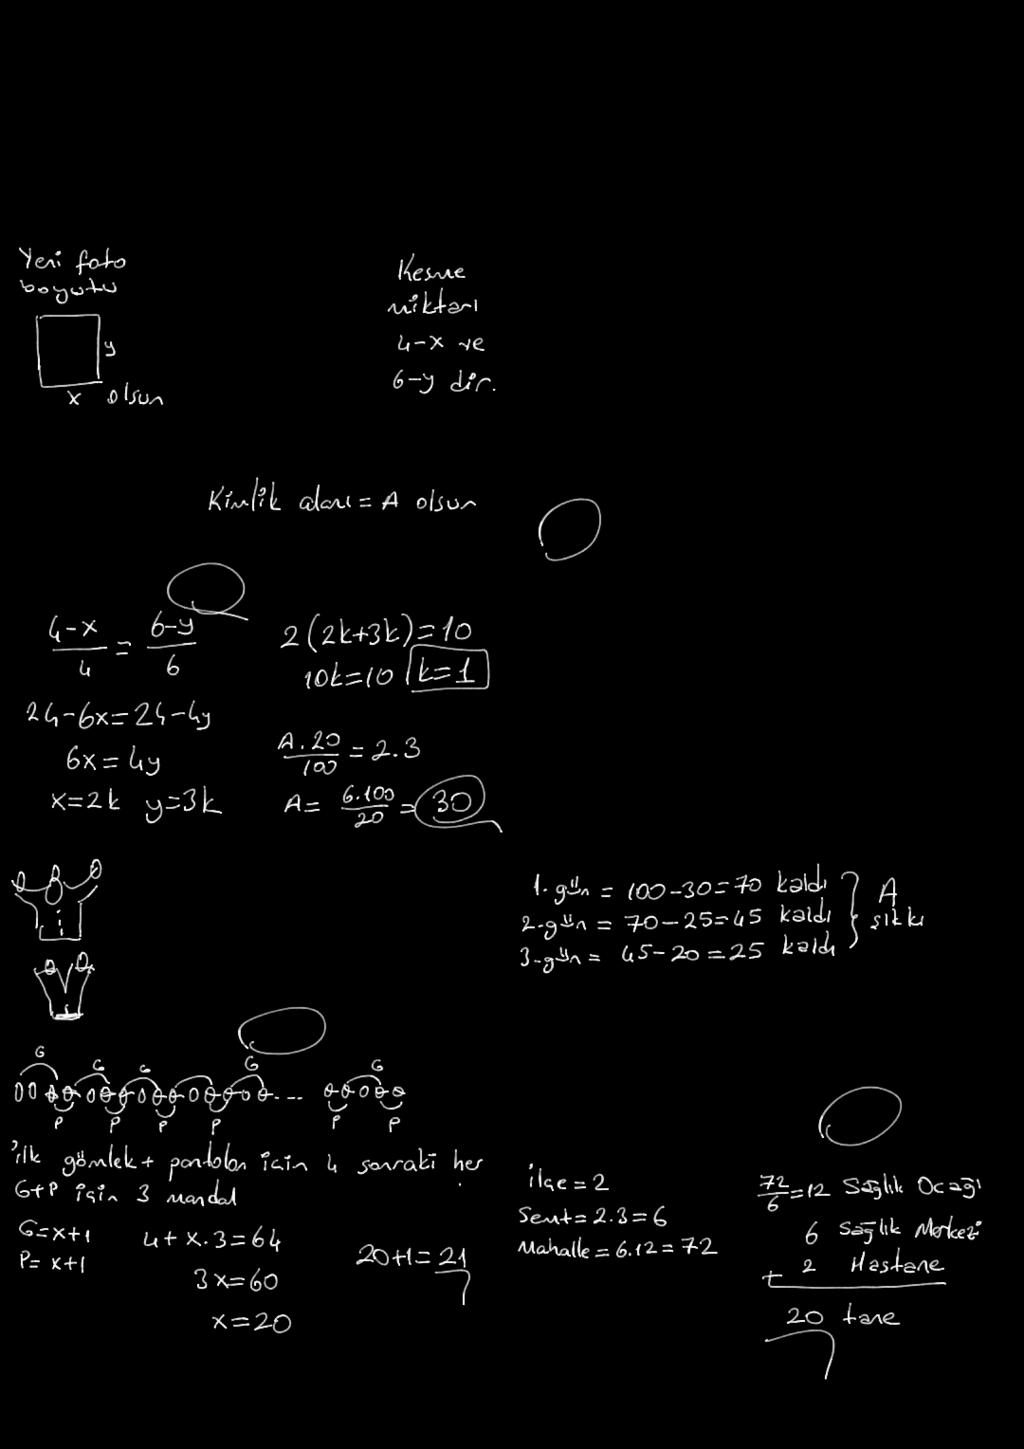 Yeni foto
boyutu
y
x olsun
Kesme
miktarı
4-x ve
6-y dir.
Kimlik alanı = A olsun
4-x/4 = 6-y/6
24-6x=24-4y
6x=4y
x=2k y=3k
2(2k+3k)=10
10k=10 k=1
A.20/100 = 2.3
A= 6.100/20 = 30
1.gün = 100-30=70 kaldı
2.gün = 70-25=45 kaldı
3.gün = 45-20=25 kaldı
A
şıkkı
G G G G G
...
P P P P P P
ilk gömlek+pantolon için 4 sonraki her
G+P için 3 mandal
G=x+1
P=x+1
4+x.3=64
3x=60
x=20
20+1=21
ilçe=2
Semt=2.3=6
Mahalle=6.12=72
72/6=12 Sağlık Ocağı
6 Sağlık Merkezi
+ 2 Hastane
20 tane